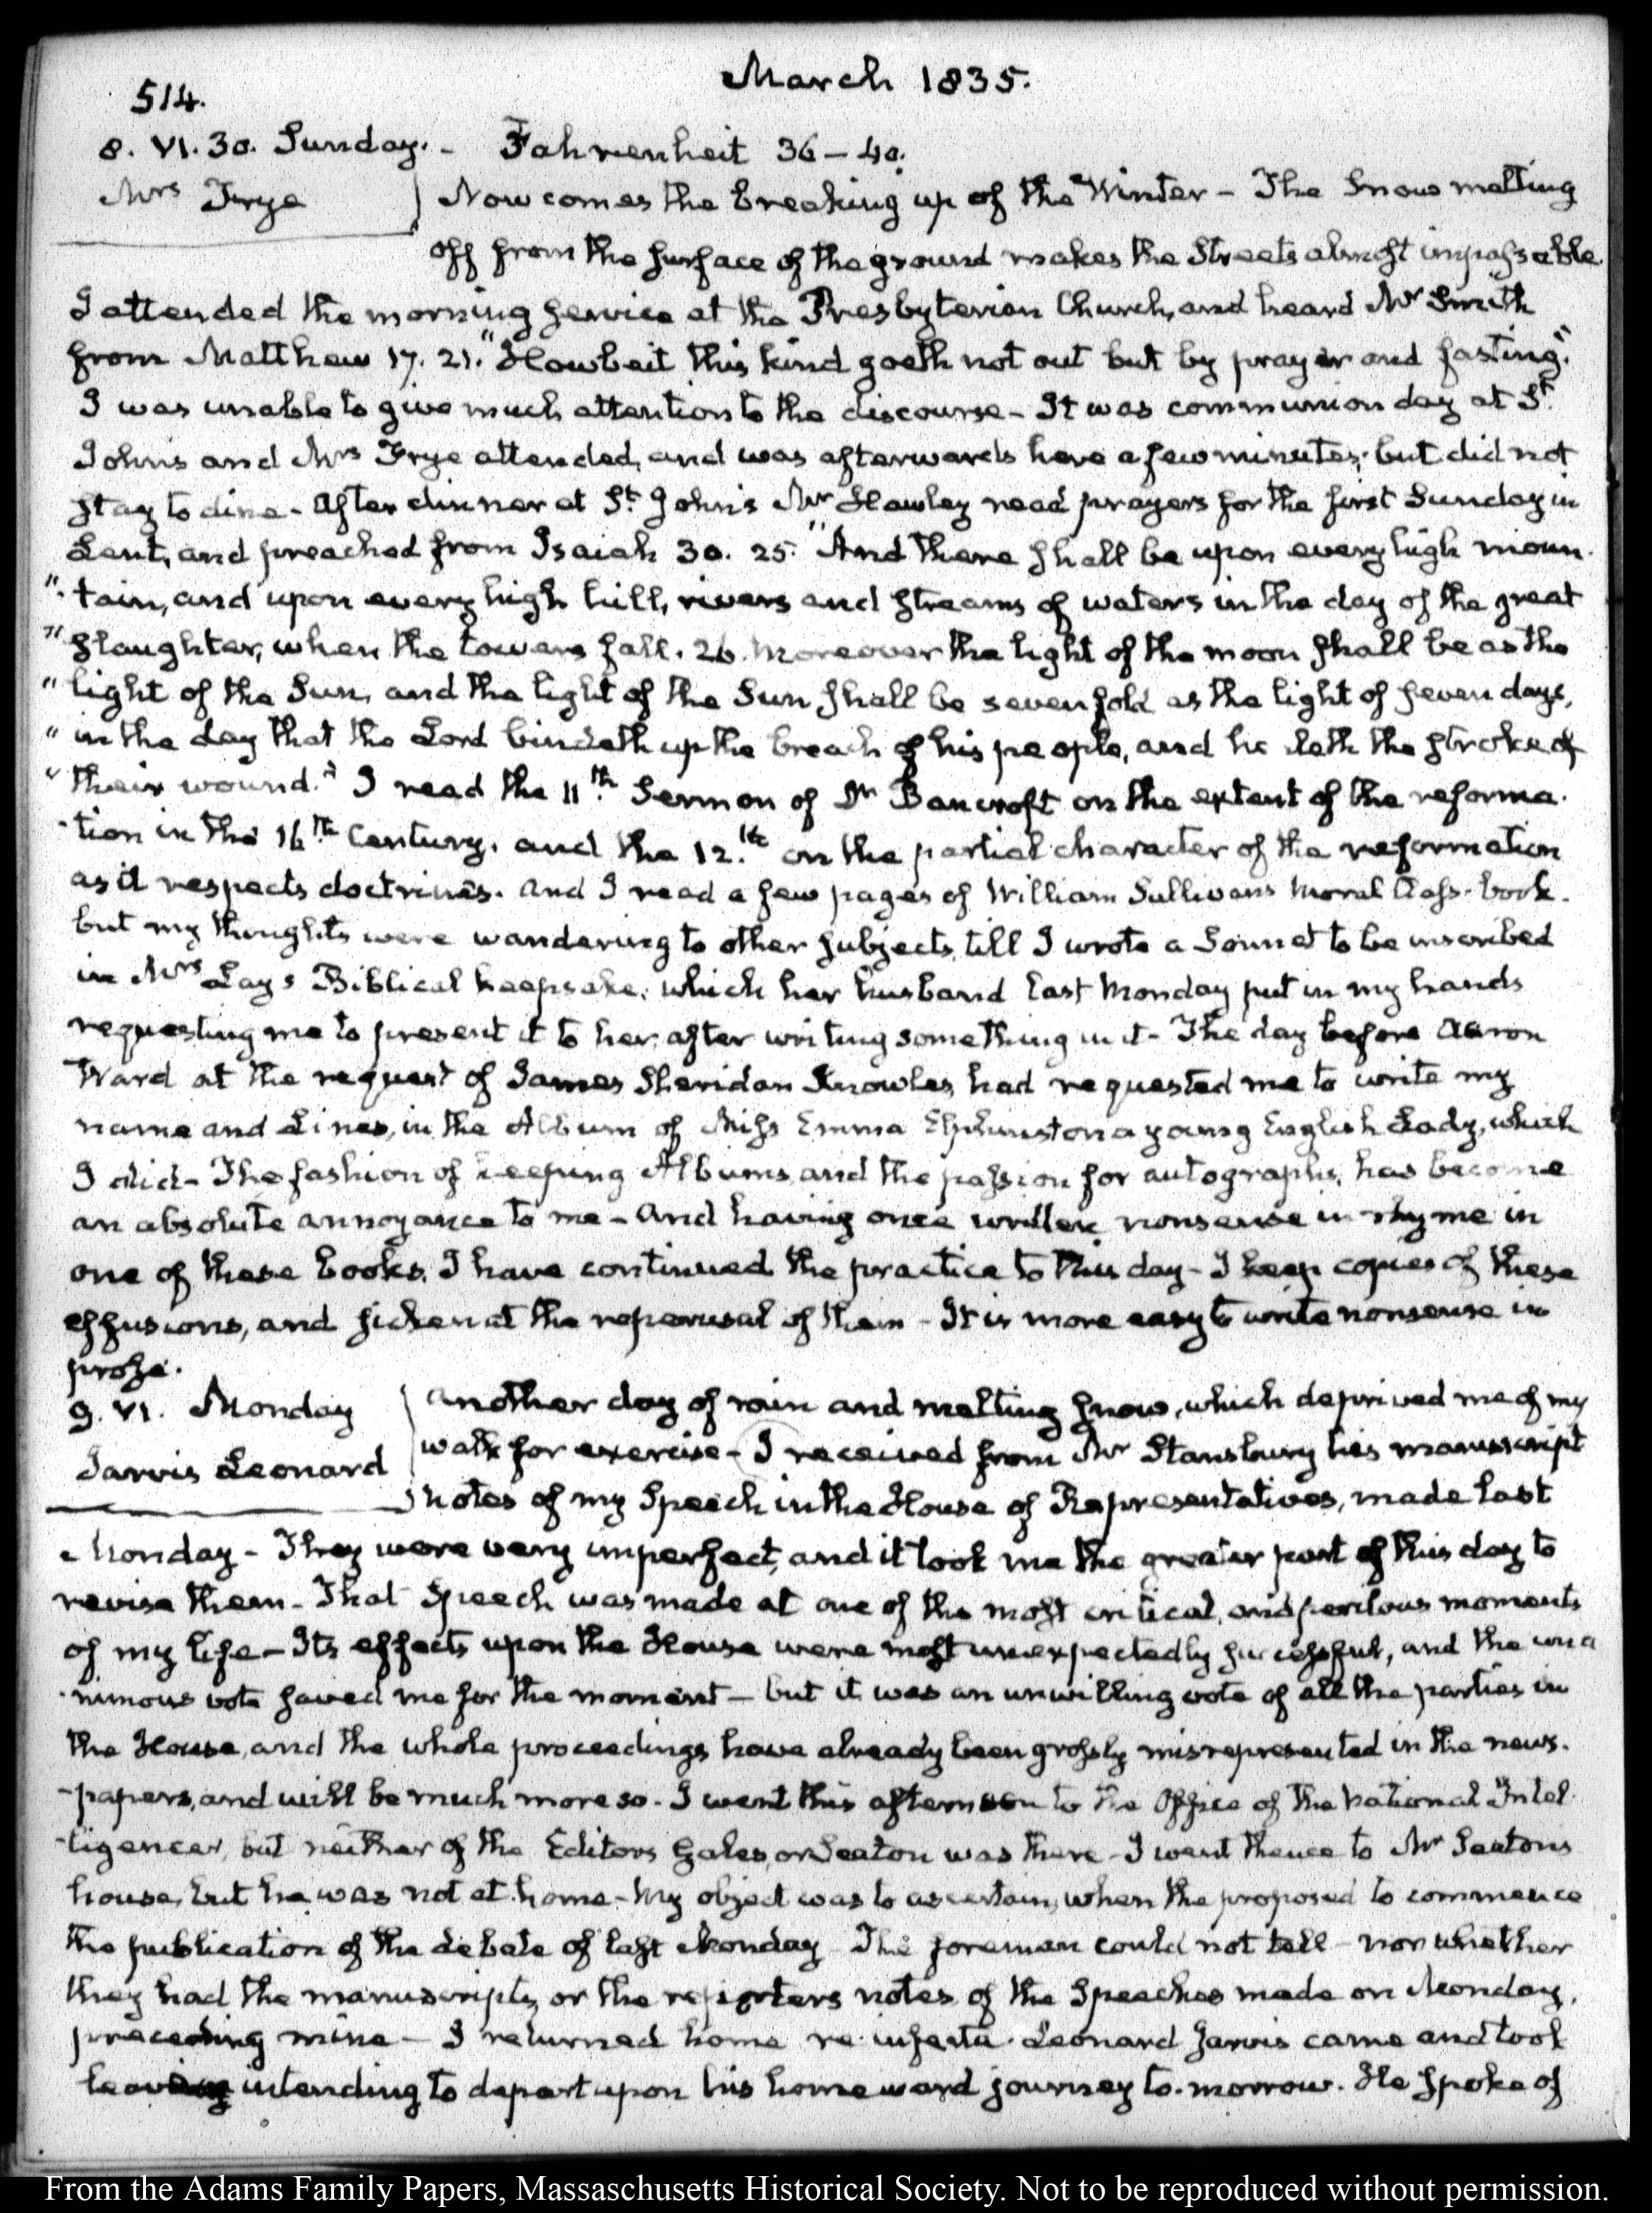 March 1835.
514.
8. VI. 30. Sunday. - Fahrenheit 36 – 40.
Mrs Frye } Now comes the breaking up of the Winter – The Snow melting
off from the surface of the ground makes the Streets almost impassable.
I attended the morning service at the Presbyterian Church, and heard Mr Smith
from Matthew 17. 21. "Howbeit this kind goeth not out but by prayer and fasting."
I was unable to give much attention to the discourse – It was communion day at St.
John's and Mrs Frye attended, and was afterwards here a few minutes; but did not
stay to dine – After dinner at St. John's Mr Hawley read prayers for the first Sunday in
Lent, and preached from Isaiah 30. 25. "And there shall be upon every high moun-
"-tain, and upon every high hill, rivers and streams of waters in the day of the great
"slaughter, when the towers fall. 26. Moreover the light of the moon shall be as the
"light of the Sun, and the light of the Sun shall be seven fold as the light of seven days,
"in the day that the Lord bindeth up the breach of his people, and healeth the stroke of
"their wound." I read the 11th. Sermon of Dr Bancroft on the extent of the reforma-
-tion in the 16th. Century, and the 12.th on the partial character of the reformation
as it respects doctrines. And I read a few pages of William Sullivans Moral Class-book.
but my thoughts were wandering to other subjects, till I wrote a Sonnet to be inscribed
in Mrs Lay's Biblical keepsake, which her husband last Monday put in my hands
requesting me to present it to her, after writing something in it – The day before Aaron
Ward at the request of James Sheridan Knowles, had requested me to write my
name and Lines, in the Album of Miss Emma Elphinstone a young English Lady, which
I did – The fashion of keeping Albums, and the passion for autographs, has become
an absolute annoyance to me – And having once written nonsense in rhyme in
one of these books, I have continued the practice to this day – I keep copies of these
effusions, and sicken at the reperusal of them – It is more easy to write nonsense in
prose.
9. VI. Monday } Another day of rain and melting snow, which deprived me of my
walk for exercise – I received from Mr Stansbury his manuscript
Jarvis Leonard
notes of my Speech in the House of Representatives, made last
Monday – They were very imperfect, and it took me the greater part of this day to
revise them – That Speech was made at one of the most critical, and perilous moments
of my life – Its effects upon the House were most unexpectedly successful, and the una
-nimous vote saved me for the moment – but it was an unwilling vote of all the parties in
the House, and the whole proceedings have already been grossly misrepresented in the news-
-papers, and will be much more so. I went this afternoon to the Office of the National Intel-
-ligencer, but neither of the Editors Gales, or Seaton was there – I went thence to Mr Seatons
house, but he was not at home – My object was to ascertain, when the proposed to commence
the publication of the debate of last Monday – The foreman could not tell – nor whether
they had the manuscripts, or the reporters notes of the Speeches made on Monday,
preceding mine – I returned home re infecta. Leonard Jarvis came and took
leave intending to depart upon his homeward journey to-morrow. He spoke of
From the Adams Family Papers, Massaschusetts Historical Society. Not to be reproduced without permission.